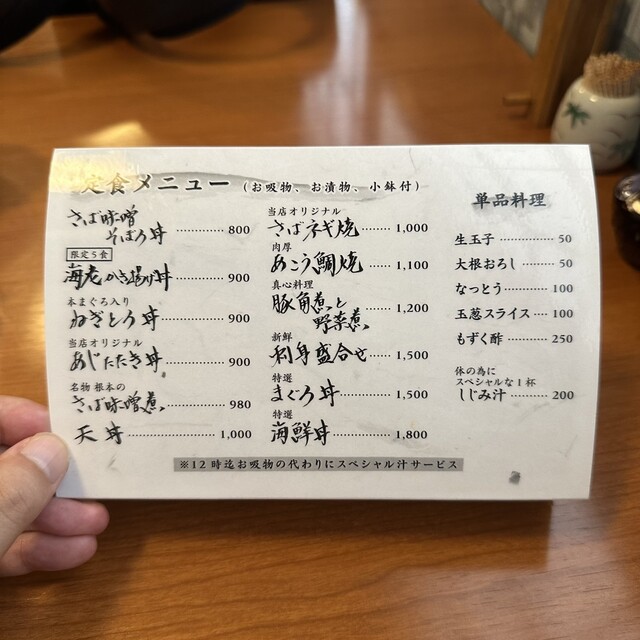 定食メニュー（お吸物、お漬物、小鉢付）
さば味噌
そぼろ丼 ………… 800
限定5食
海老かき揚げ丼 ………… 900
本まぐろ入り
ねぎとろ丼 ………… 900
当店オリジナル
あじたたき丼 ………… 900
名物 根本の
さば味噌煮 ………… 980
天丼 ………… 1,000
当店オリジナル
さばネギ焼 ………… 1,000
肉厚
あこう鯛焼 ………… 1,100
真心料理
豚角煮と
野菜煮 ………… 1,200
新鮮
刺身盛合せ ………… 1,500
特選
まぐろ丼 ………… 1,500
特選
海鮮丼 ………… 1,800
単品料理
生玉子 ………… 50
大根おろし ………… 50
なっとう ………… 100
玉葱スライス ………… 100
もずく酢 ………… 250
体の為に
スペシャルな1杯
しじみ汁 ………… 200
※12時迄お吸物の代わりにスペシャル汁サービス